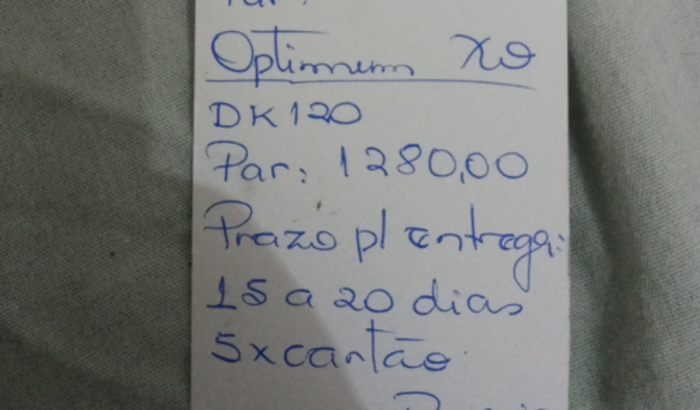 Optimum XO
DK120
Par: 1280,00
Prazo p/ entrega:
15 a 20 dias
5x cartão